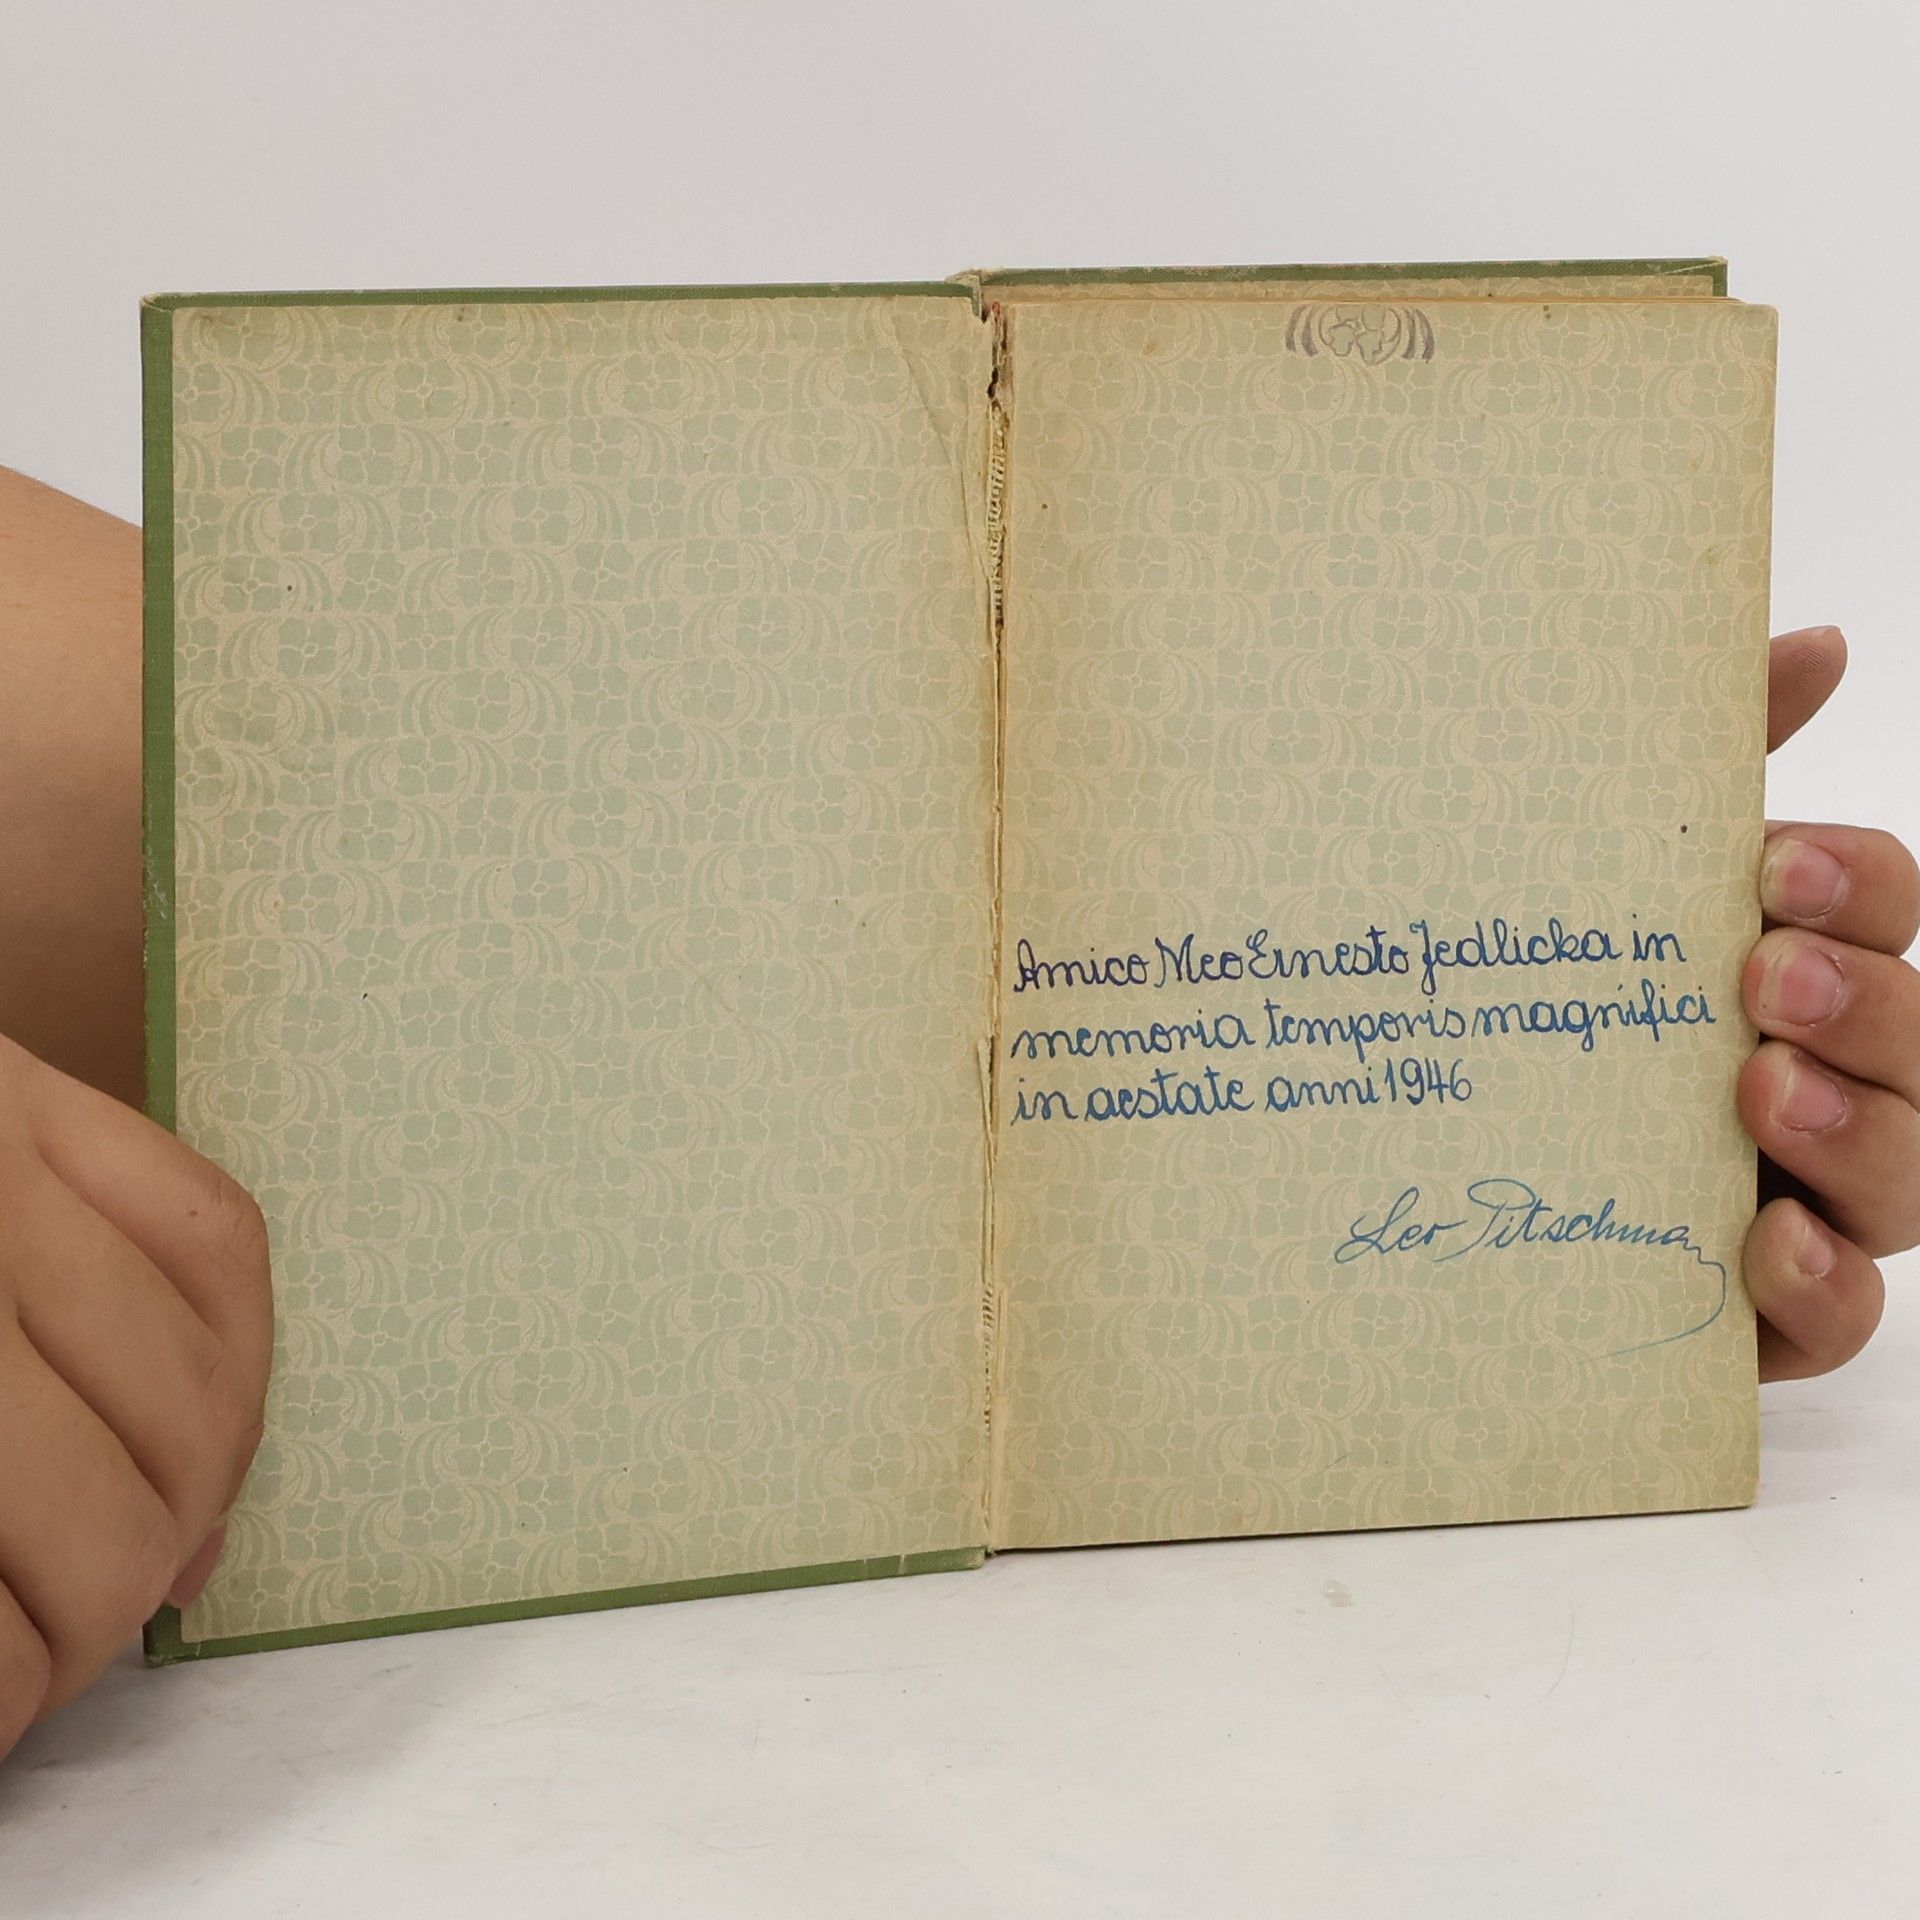 Amico Meo Ernesto Jedlicka in
memoria temporis magnifici
in aestate anni 1946
Leo Pitschman